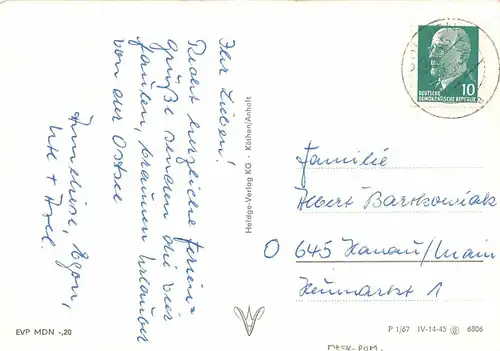 Ihr Lieben!
Recht herzliche Ferien-
grüße senden die vier
faulen, braunen Urlauber
von der Ostsee
Annelise, Egon,
Ute + Axel.
Heldge-Verlag KG · Köthen/Anhalt
DEUTSCHE
DEMOKRATISCHE REPUBLIK
10
Familie
Albert Bartkowiak
O 645 Hanau/Main
Heumarkt 1
EVP MDN -,20
P 1/67 IV-14-45 6806
MECK-POM.